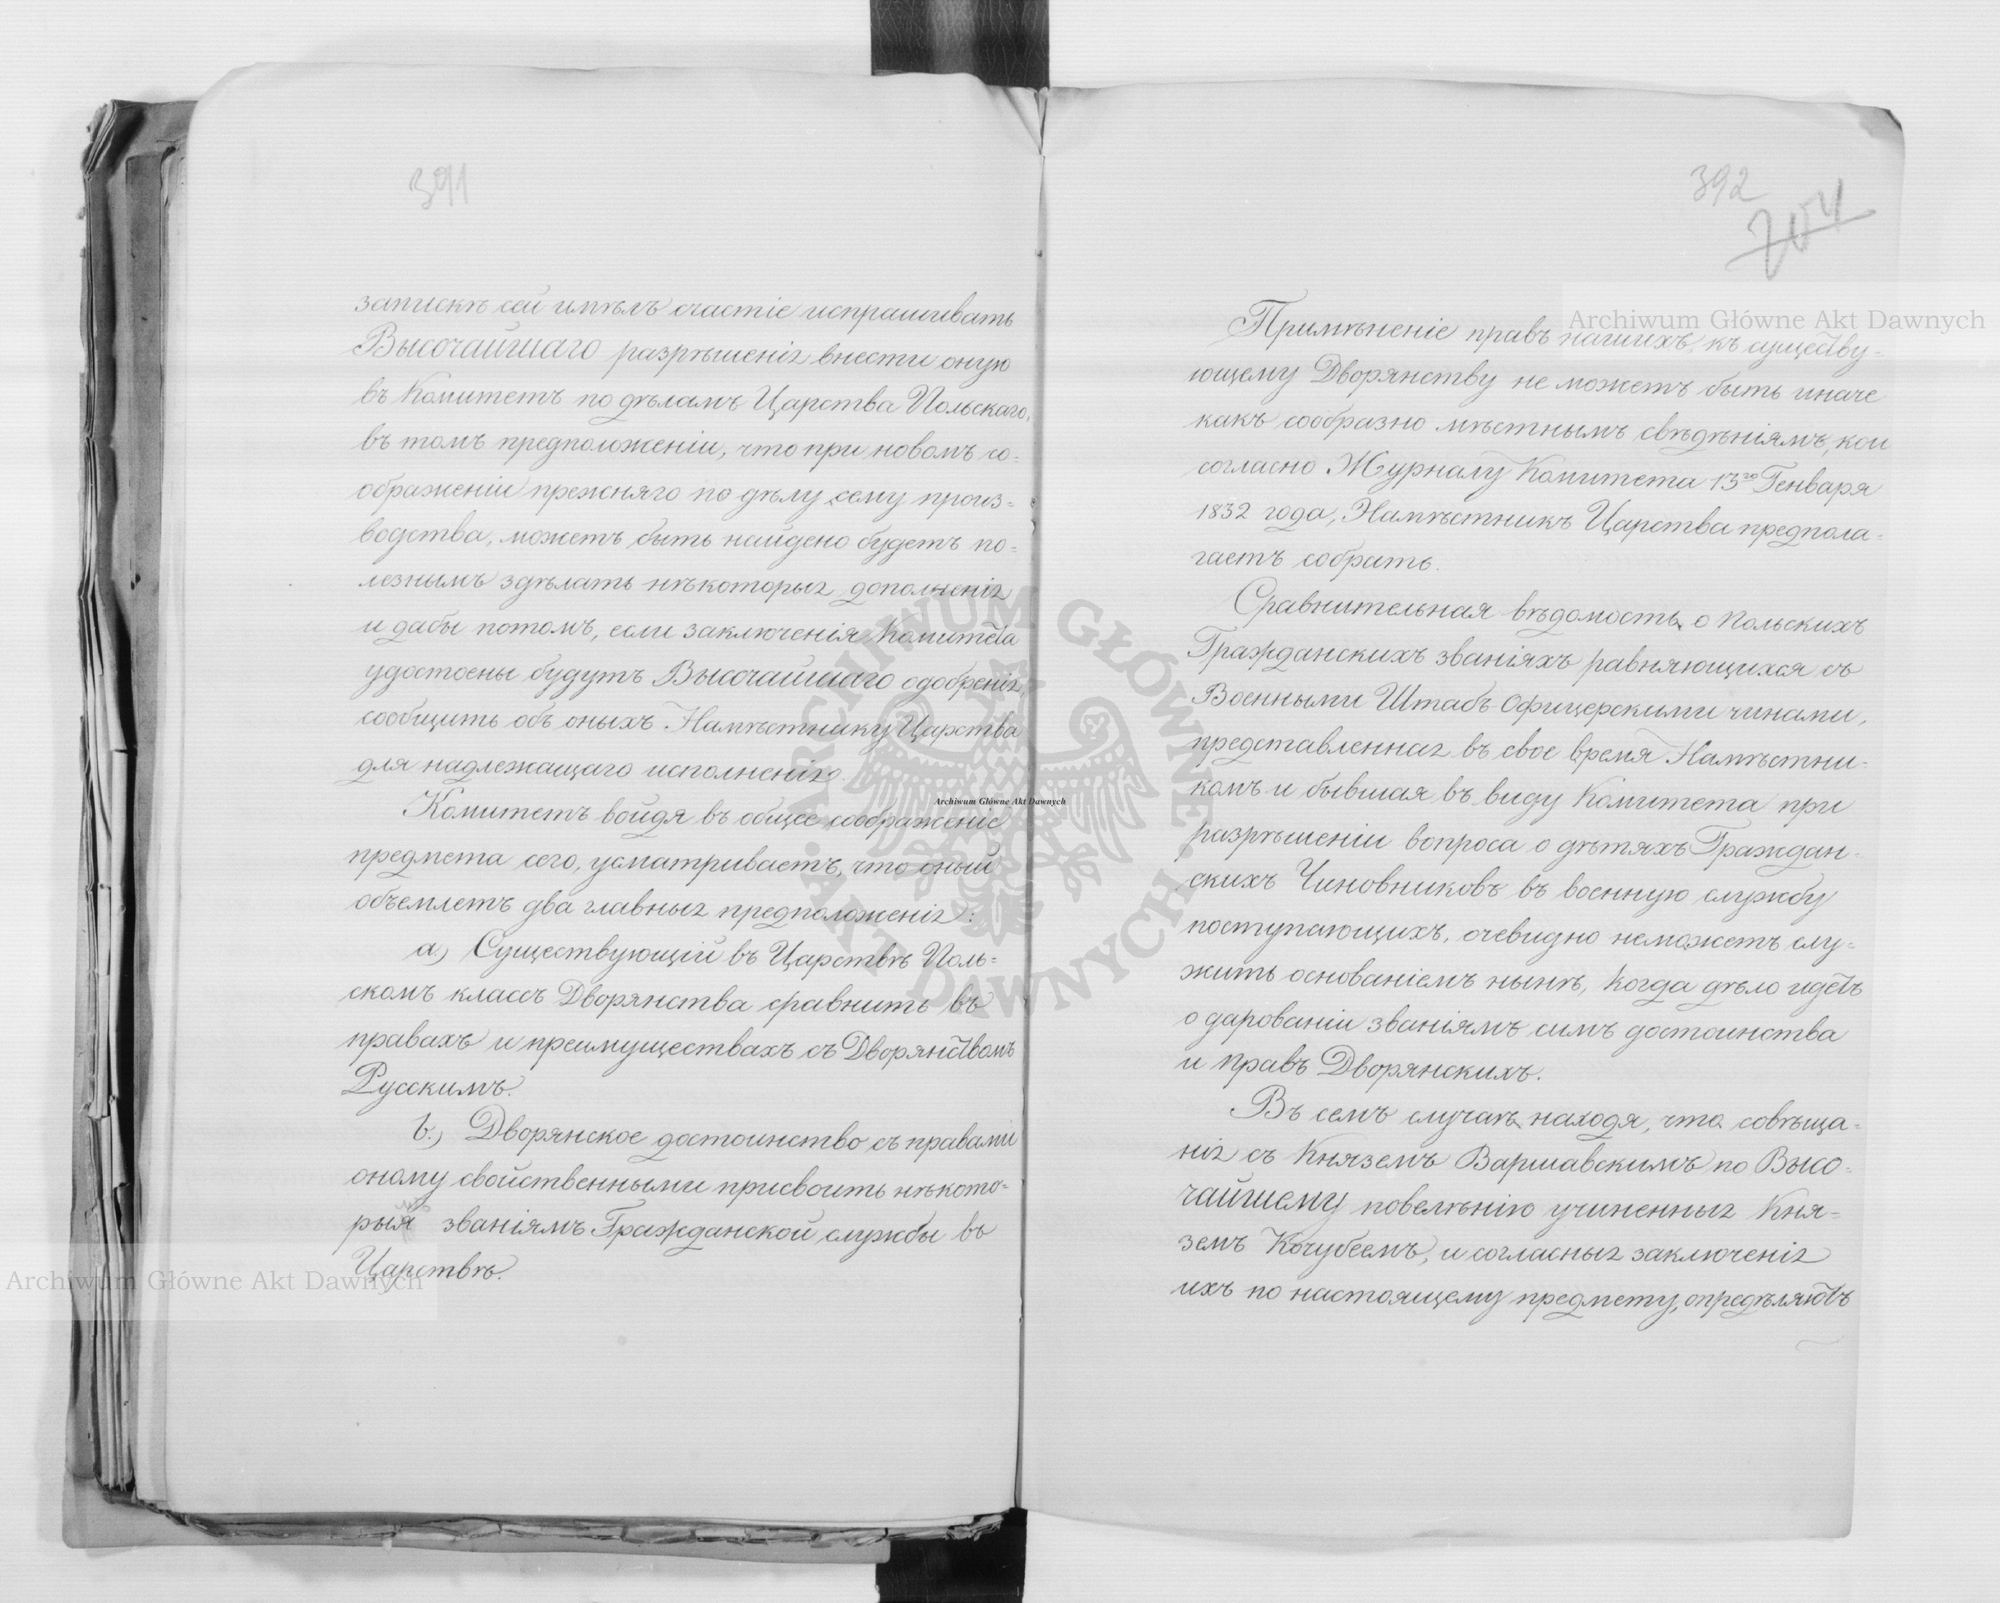 391
запискѣ сей имѣлъ счастіе испрашивать
Высочайшаго разрѣшенія внести оную
въ Комитетъ по дѣламъ Царства Польскаго,
въ томъ предположеніи, что при новомъ со=
ображеніи прежняго по дѣлу сему произ=
водства, можетъ быть найдено будетъ по=
лезнымъ здѣлать нѣкоторыя дополненія
и дабы потомъ, если заключенія Комитета
удостоены будутъ Высочайшаго одобренія,
сообщить объ оныхъ Намѣстнику Царства
для надлежащаго исполненія.
Комитетъ войдя въ общее соображеніе
предмета сего, усматриваетъ, что оный
объемлетъ два главныя предположенія:
а.) Существующій въ Царствѣ Поль=
скомъ классъ Дворянства сравнить въ
правахъ и преимуществахъ съ Дворянствомъ
Русскимъ.
b.) Дворянское достоинство съ правами
оному свойственными присвоить нѣкото=
рыя званіямъ Гражданской службы въ
Царствѣ.
392
204
Примѣненіе правъ нашихъ къ существу=
ющему Дворянству не можетъ быть иначе
какъ сообразно мѣстнымъ свѣдѣніямъ, кои
согласно Журналу Комитета 13го Генваря
1832 года, Намѣстникъ Царства предпола=
гаетъ собрать.
Сравнительная вѣдомость о Польскихъ
Гражданскихъ званіяхъ равняющихся съ
Военными Штабъ Офицерскими чинами,
представленная въ свое время Намѣстни=
комъ и бывшая въ виду Комитета при
разрѣшеніи вопроса о дѣтяхъ Граждан=
скихъ Чиновниковъ въ военную службу
поступающихъ, очевидно неможетъ слу=
жить основаніемъ нынѣ, когда дѣло идетъ
о дарованіи званіямъ симъ достоинства
и правъ Дворянскихъ.
Въ семъ случаѣ находя, что совѣща=
нія съ Княземъ Варшавскимъ по Высо=
чайшему повелѣнію учиненныя Кня=
земъ Кочубеемъ, и согласныя заключенія
ихъ по настоящему предмету, опредѣляютъ
Archiwum Główne Akt Dawnych
Archiwum Główne Akt Dawnych
Archiwum Główne Akt Dawnych
ARCHIWUM GŁÓWNE AKT DAWNYCH